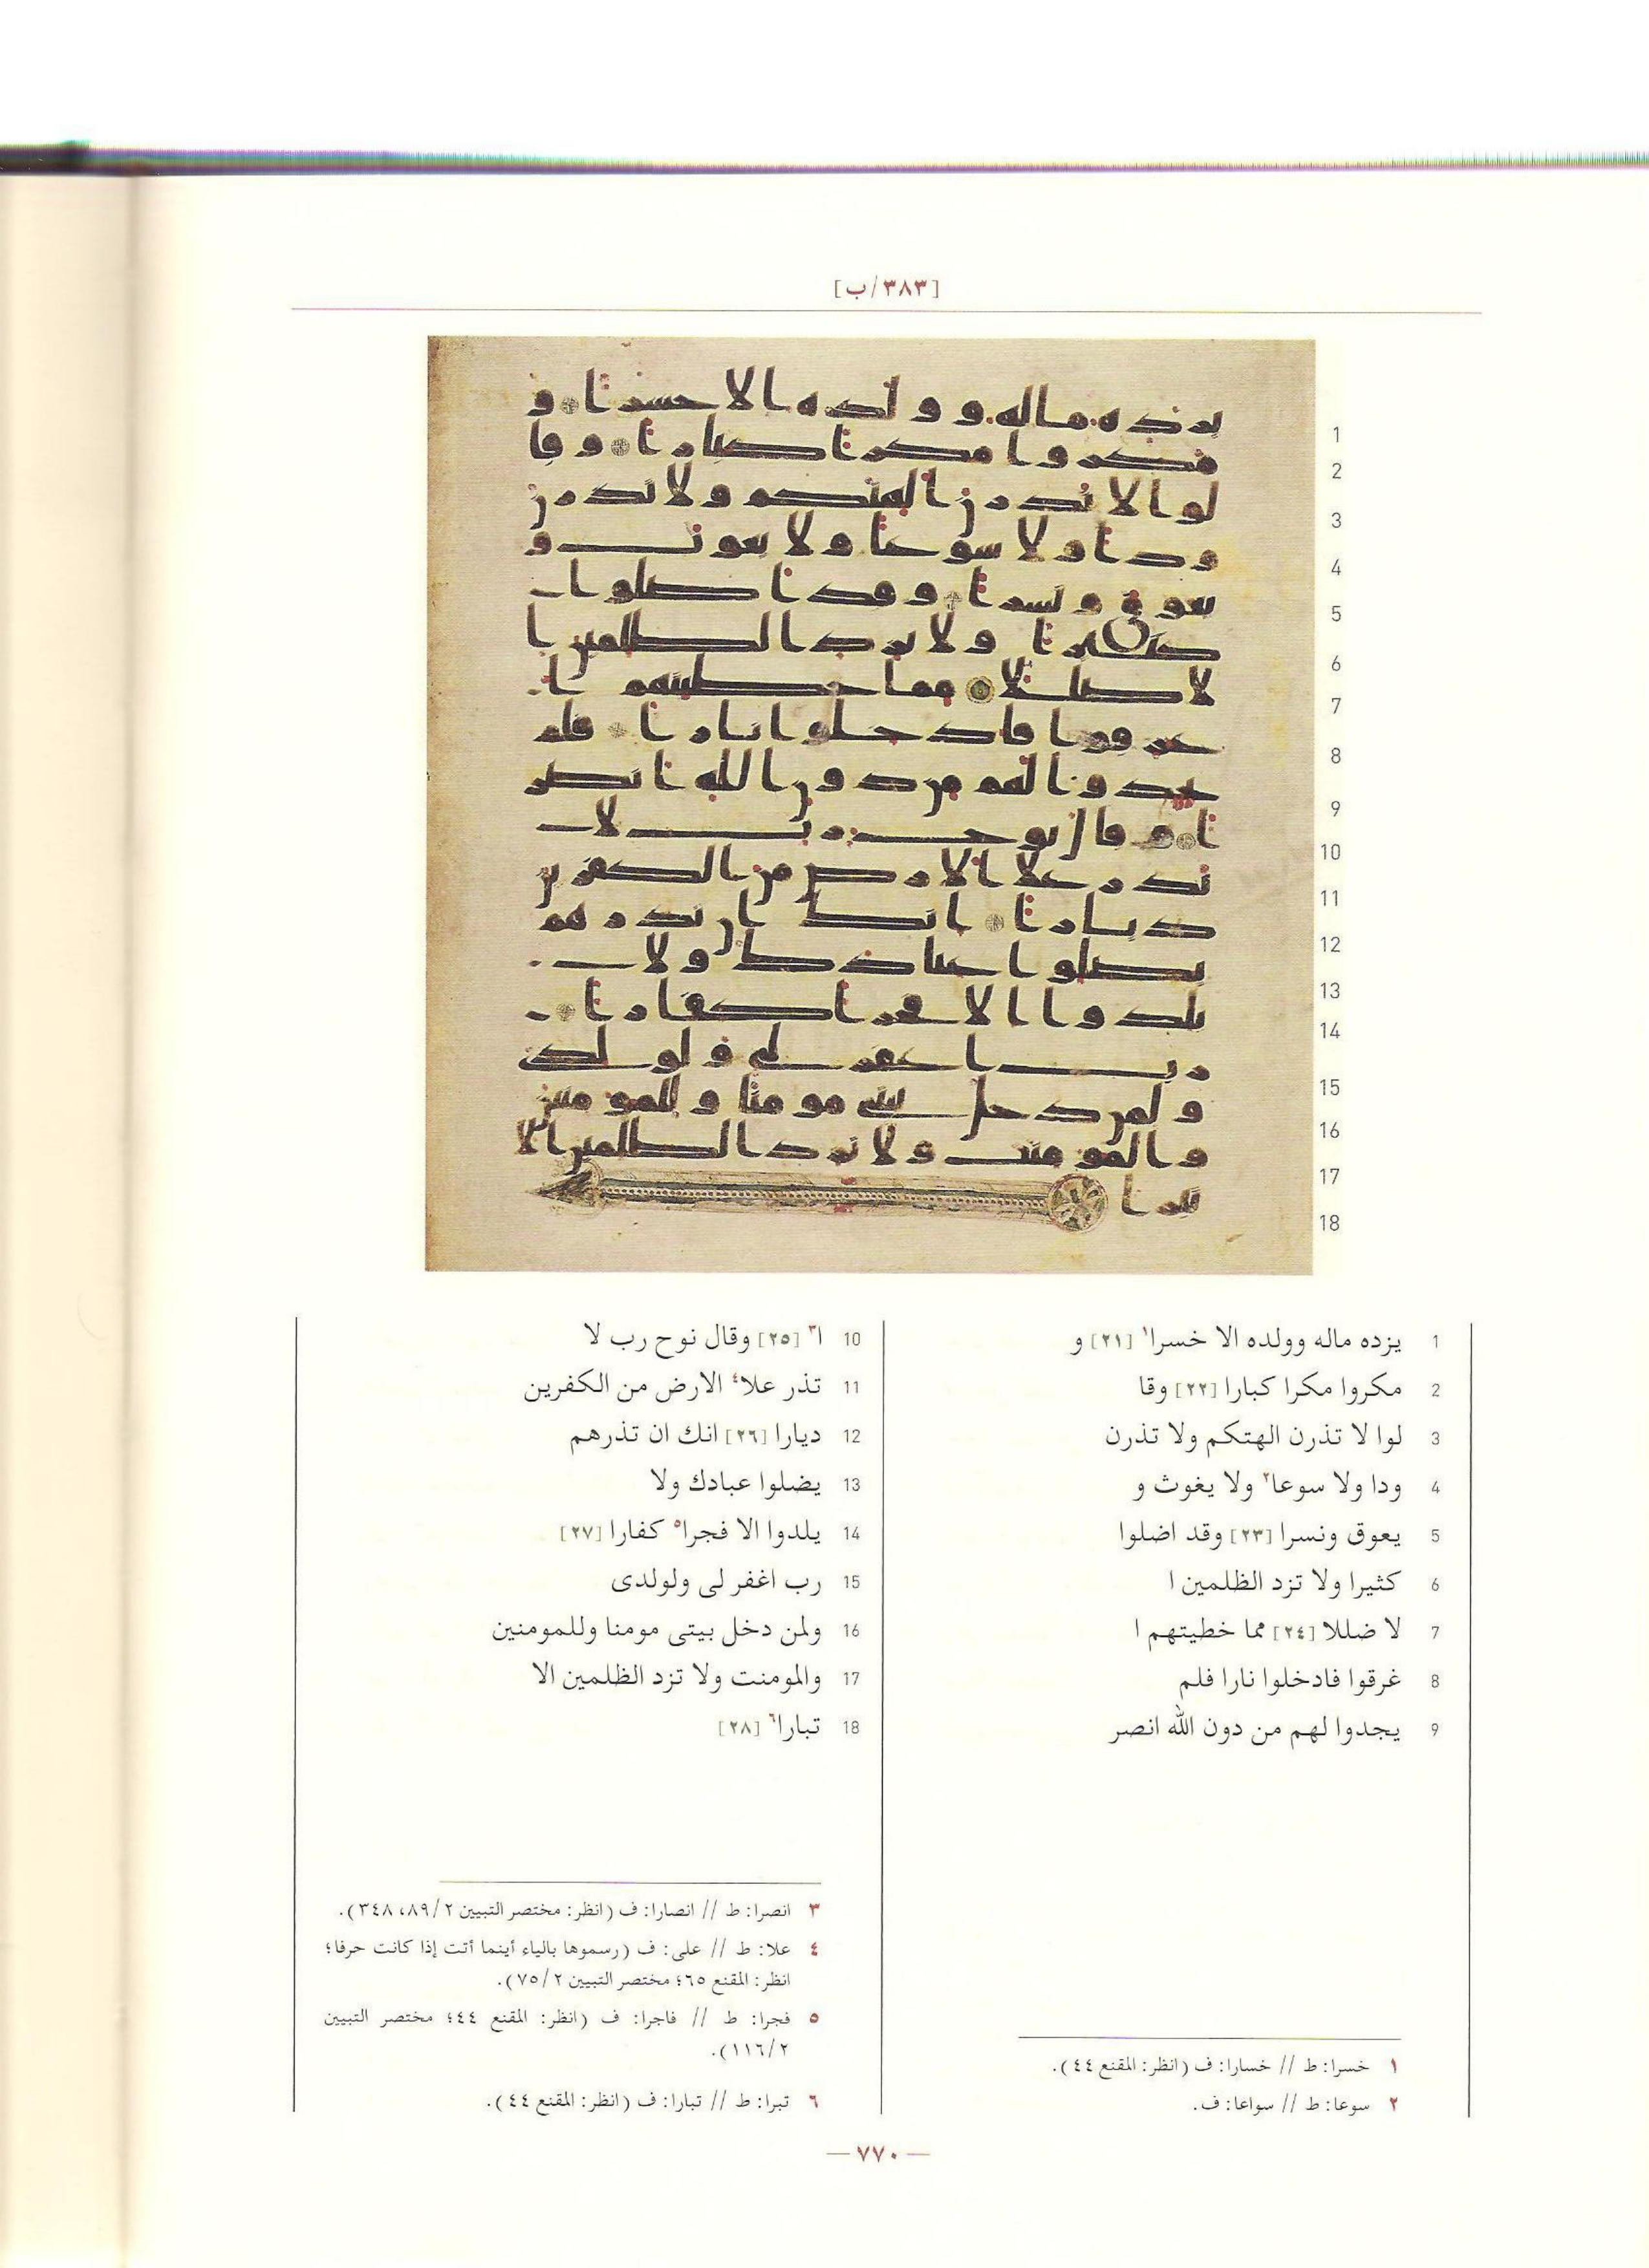 [٣٨٣/ب]
1 يزده ماله وولده الا خسرا١ [٢١] و
2 مكروا مكرا كبارا [٢٢] وقا
3 لوا لا تذرن الهتكم ولا تذرن
4 ودا ولا سوعا٢ ولا يغوث و
5 يعوق ونسرا [٢٣] وقد اضلوا
6 كثيرا ولا تزد الظلمين ا
7 لا ضللا [٢٤] مما خطيتهم ا
8 غرقوا فادخلوا نارا فلم
9 يجدوا لهم من دون الله انصر
١ خسرا: ط // خسارا: ف (انظر: المقنع ٤٤).
٢ سوعا: ط // سواعا: ف.
10 ا٣ [٢٥] وقال نوح رب لا
11 تذر علا٤ الارض من الكفرين
12 ديارا [٢٦] انك ان تذرهم
13 يضلوا عبادك ولا
14 يلدوا الا فجرا٥ كفارا [٢٧]
15 رب اغفر لى ولولدى
16 ولمن دخل بيتى مومنا وللمومنين
17 والمومنت ولا تزد الظلمين الا
18 تبارا٦ [٢٨]
٣ انصرا: ط // انصارا: ف (انظر: مختصر التبيين ٢/٨٩، ٣٤٨).
٤ علا: ط // على: ف (رسموها بالياء أينما أتت إذا كانت حرفا؛
انظر: المقنع ٦٥؛ مختصر التبيين ٢/٧٥).
٥ فجرا: ط // فاجرا: ف (انظر: المقنع ٤٤؛ مختصر التبيين
٢/١١٦).
٦ تبرا: ط // تبارا: ف (انظر: المقنع ٤٤).
— ٧٧٠ —